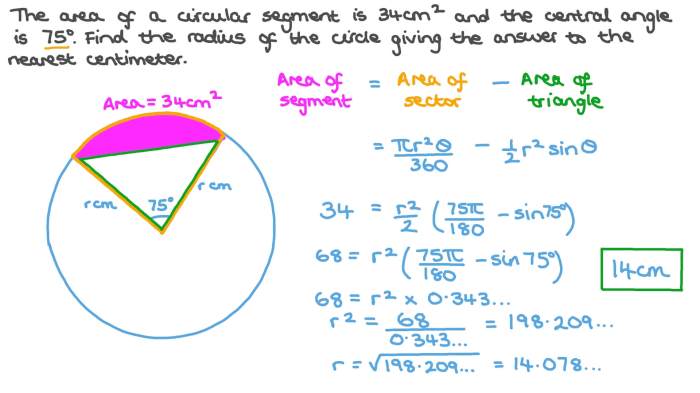 The area of a circular segment is 34cm² and the central angle
is 75°. Find the radius of the circle giving the answer to the
nearest centimeter.
Area = 34cm²
r cm
75°
r cm
Area of segment = Area of sector − Area of triangle
= πr²θ/360 − 1/2 r² sin θ
34 = r²/2 (75π/180 − sin75°)
68 = r² (75π/180 − sin 75°)
68 = r² × 0.343...
r² = 68/0.343... = 198.209...
r = √198.209... = 14.078...
14cm